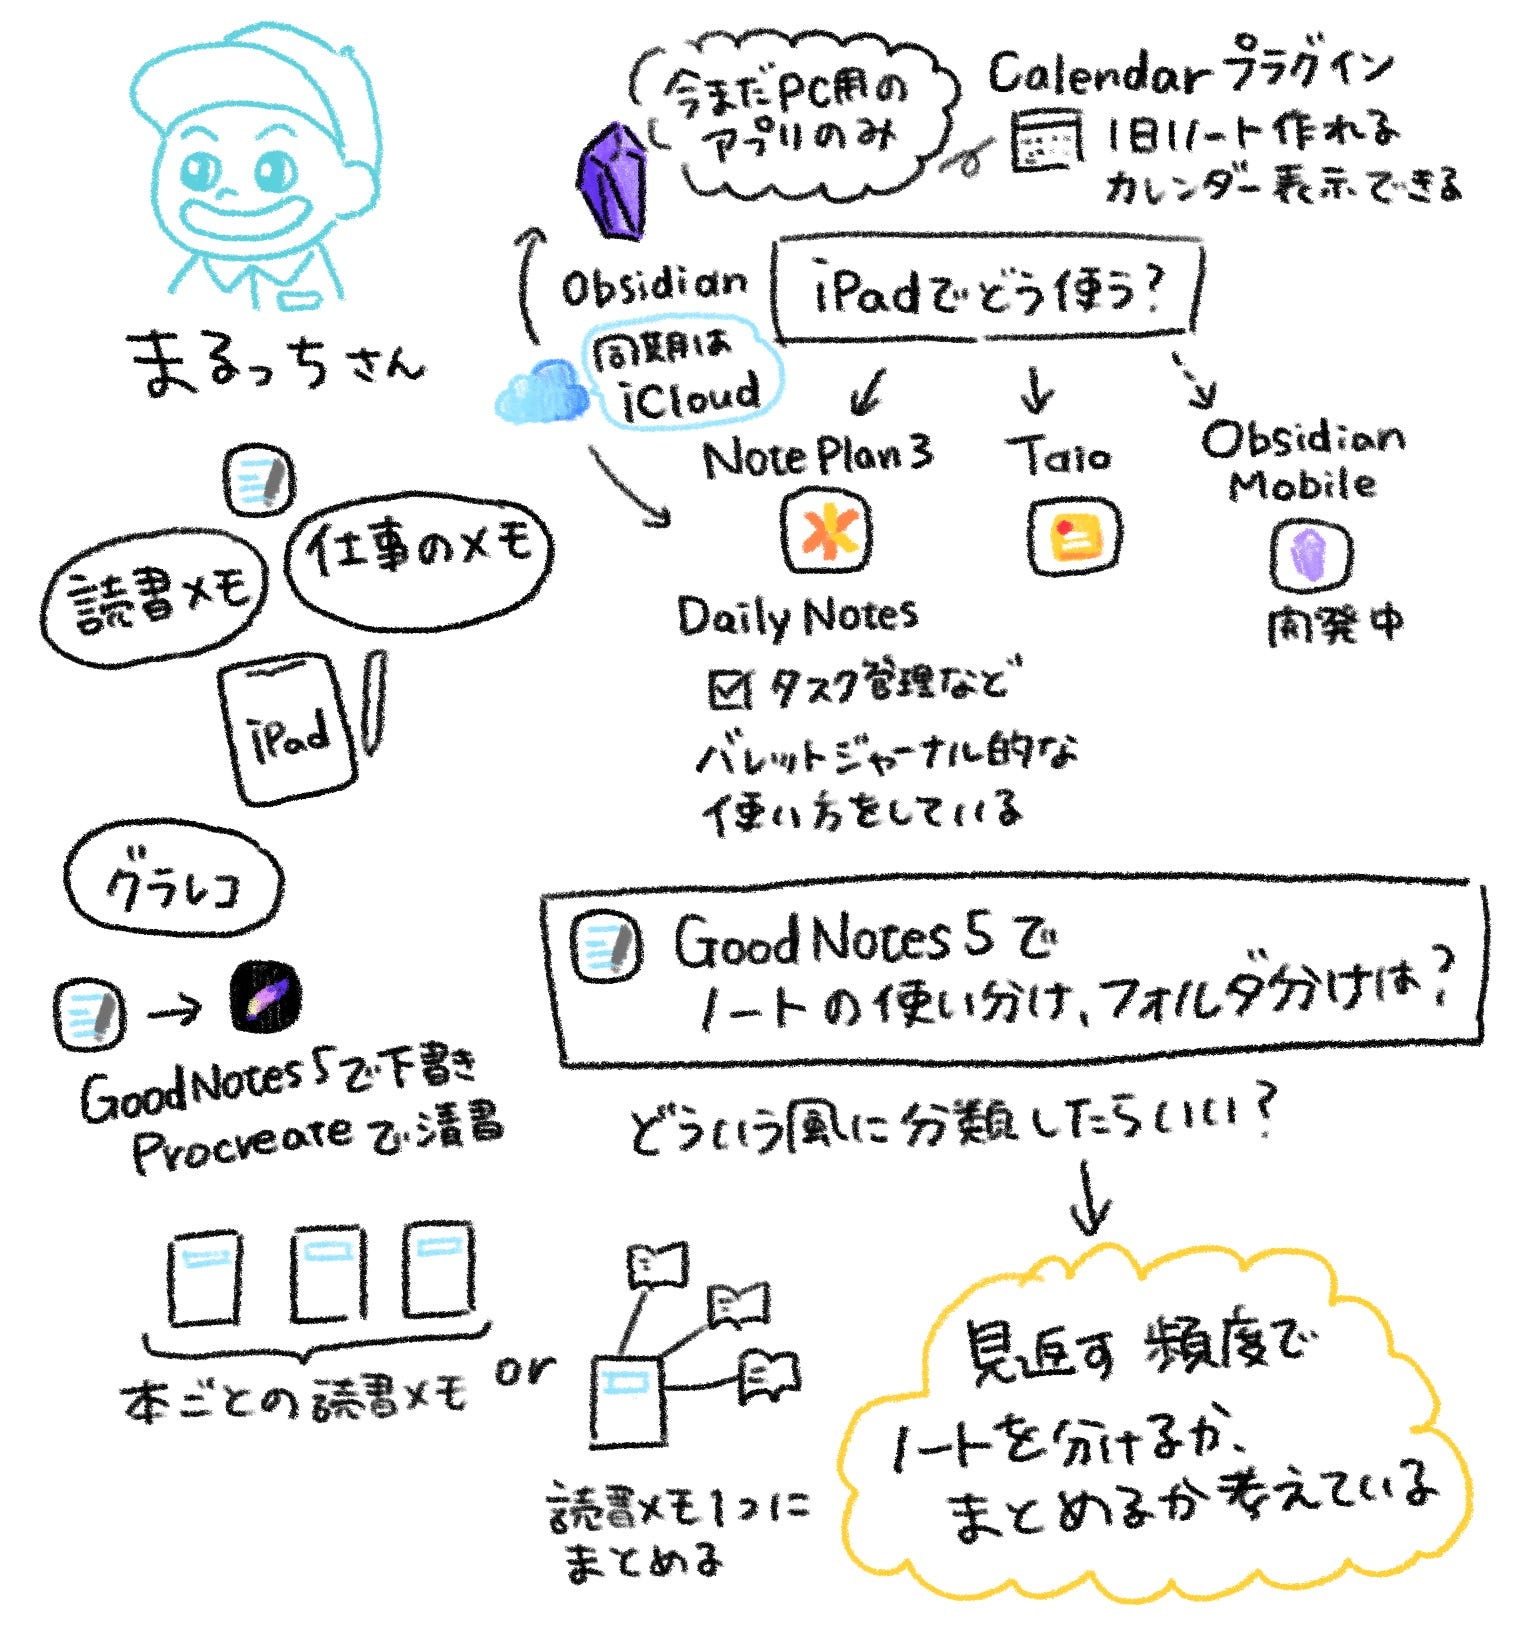 まるっちさん
読書メモ
仕事のメモ
iPad
グラレコ
GoodNotes 5で下書き
Procreateで清書
本ごとの読書メモ
or
読書メモ1つに
まとめる
今まだPC用の
アプリのみ
Calendarプラグイン
1日1ノート作れる
カレンダー表示できる
Obsidian
同期は
iCloud
iPadでどう使う?
Note Plan 3
Taio
Obsidian
Mobile
開発中
Daily Notes
タスク管理など
バレットジャーナル的な
使い方をしている
GoodNotes 5で
ノートの使い分け、フォルダ分けは?
どういう風に分類したらいい?
見返す頻度で
ノートを分けるか、
まとめるか考えている